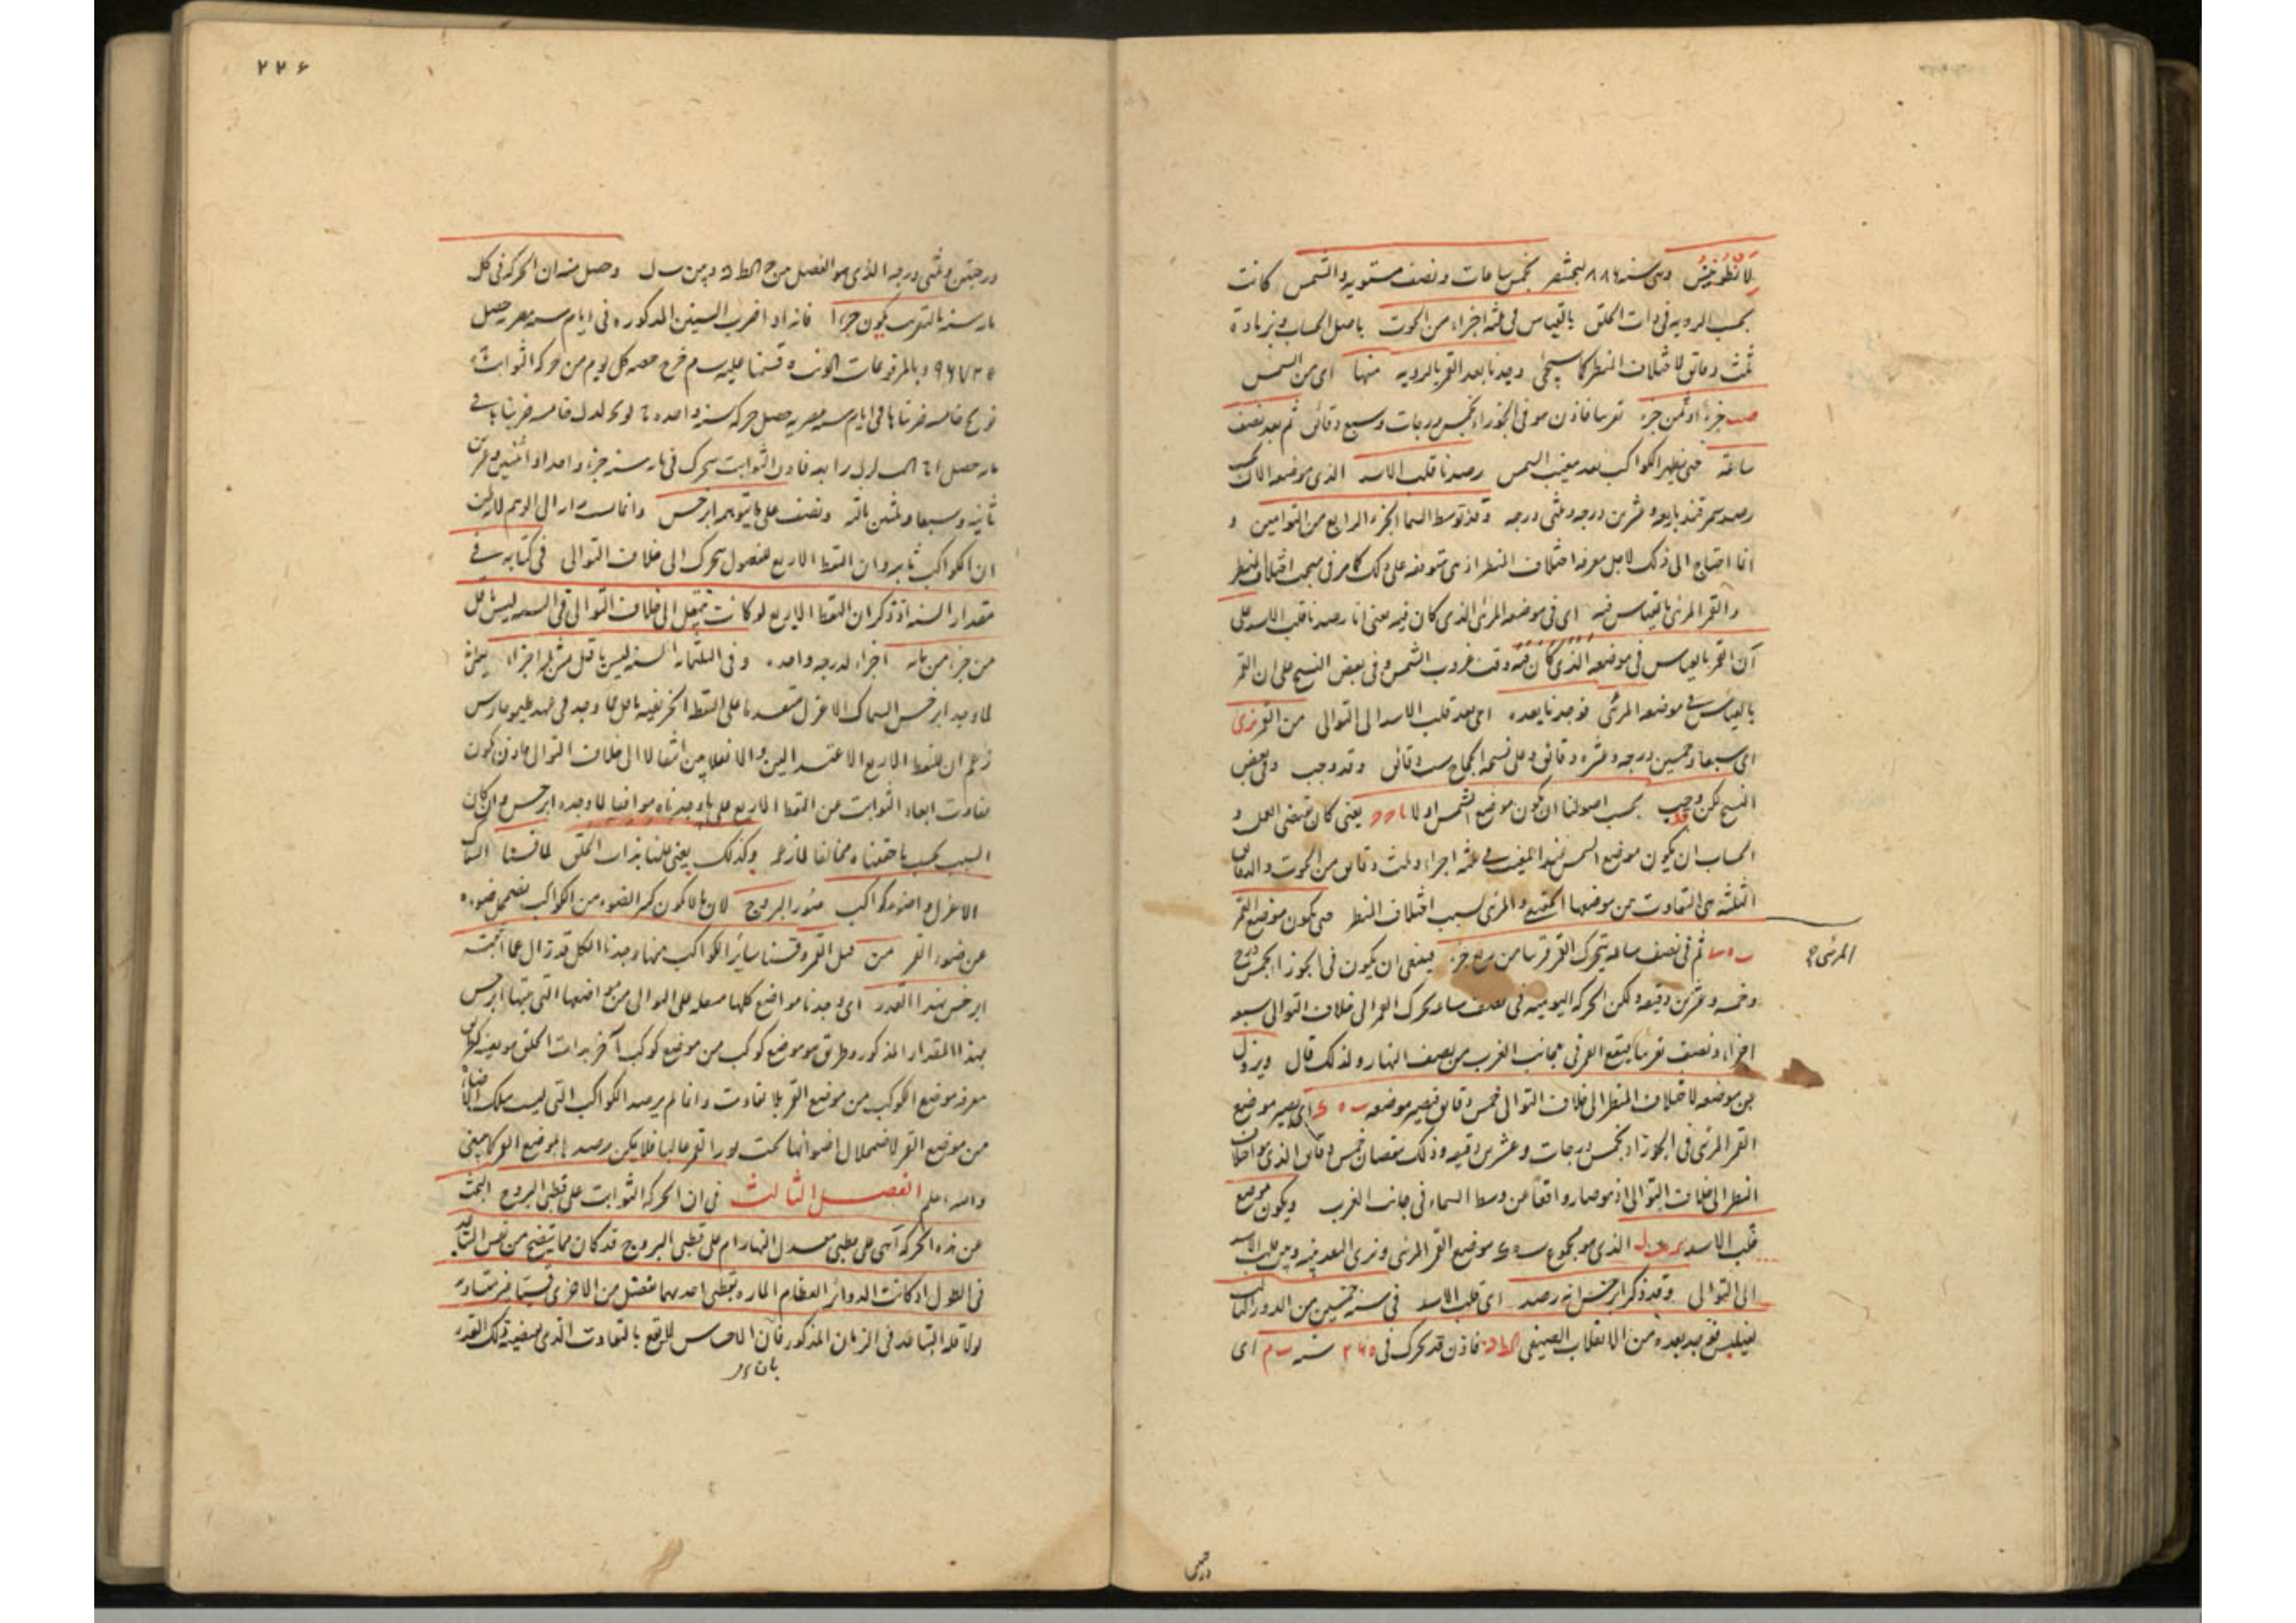 لانطونينس وهى سنه ٨٨٦ لبختنصر بخمس ساعات ونصف مستويه والشمس كانت
بحسب الرويه فى ذات الحلق بالقياس فى ثلثه اجزاء من الحوت باصل الحساب وبزيادة
ثلث دقائق لاختلاف المنظر كما سيجئ وجدنا بعد القمر بالرويه منها اى من الشمس
جزءا وثمن جزء تقريبا فاذن هو فى الجوزاء بخمس درجات وسبع دقائق ثم بعد نصف
ساعة حتى يظهر الكواكب بعد مغيب الشمس رصدنا قلب الاسد الذى موضعه الان بحسب
رصد سمرقند باربعه وعشرين درجه وثلثى درجه وقد توسط السما الجزء الرابع من التوامين و
انما احتاج الى ذلك لاجل معرفه اختلاف المنظر اذ هى متوقفه على ذلك كما مر فى مبحث اختلاف المنظر
والقمر المرئى بالقياس فيه اى فى موضعه المرئى الذى كان فيه يعنى انا رصدنا قلب الاسد على
ان القمر بالقياس فى موضعه الذى كان فيه وقت غروب الشمس وفى بعض النسخ على ان القمر
بالقياس فى موضعه المرئى فوجدنا بعده اى بعد قلب الاسد الى التوالى من القمر نرى
اى سبعا وخمسين درجه وعشره دقائق وعلى نسخه الحجاج ست دقائق وقد وجب وفى بعض
النسخ لكن وجب بحسب اصولنا ان يكون موضع الشمس اولا يعنى كان مقتضى العمل و
الحساب ان يكون موضع الشمس عند المغيب فى ثلثه اجزاء وثلث دقائق من الحوت والدقائق
الثلثه هى التفاوت بين موضعها الحقيقى والمرئى بسبب اختلاف المنظر حتى يكون موضع القمر
المرئى
ثم فى نصف ساعه يتحرك القمر قريبا من ربع جزء فينبغى ان يكون فى الجوزا بخمس درج
وخمسه وعشرين دقيقه ولكن الحركه اليوميه فى نصف ساعه تحرك القمر الى خلاف التوالى سبعه
اجزاء ونصف تقريبا فيقع القمر فى جانب الغرب من نصف النهار ولذلك قال ويزول
من موضعه لاختلاف المنظر الى خلاف التوالى خمس دقائق فيصير موضعه اى يصير موضع
القمر المرئى فى الجوزاء بخمس درجات وعشرين دقيقه وذلك بنقصان خمس دقائق الذى هو اختلاف
المنظر الى خلاف التوالى اذ هو صار واقعا عن وسط السماء فى جانب الغرب ويكون موضع
قلب الاسد الذى هو مجموع موضع القمر المرئى ونرى البعد بينه وبين قلب الاسد
الى التوالى وقد ذكر ابرخس انه رصد اى قلب الاسد فى سنه خمسين من الدور الثالث
لفيلبس فوجد بعده من الانقلاب الصيفى كط ن فاذن قد تحرك فى ٢٦٥ سنه ب م اى
درجتين
٢٢٦
درجتين وثلثى درجه الذى هو الفصل بين وبين وحصل منه ان الحركه فى كل
مايه سنه بالتقريب يكون جزءا فانه اذا ضرب السنين المذكوره فى ايام سنه مصريه حصل
٩٦٧٢٥ وبالمرفوعات قسمنا عليه ب م خرج حصه كل يوم من حركه الثوابت
خامسه ضربناها فى ايام سنه مصريه حصل حركه سنه واحده خامسه ضربناها فى
مايه حصل رابعه فاذن الثوابت تتحرك فى مايه سنه جزء واحدا واثنين وعشرين
ثانيه وسبعا وثلثين ثالثه ونصف على ما يتوهمه ابرخس وانما اشار الى الوهم لانه ظن
ان الكواكب ثابته وان النقط الاربع للفصول تتحرك الى خلاف التوالى فى كتابه فى
مقدار السنه اذ ذكر ان النقط الاربع لو كانت تنتقل الى خلاف التوالى فى السنه ليس باقل
من جزء من مايه اجزاء لدرجه واحده وفى الثلثمايه السنه ليس باقل من ثلثه اجزاء يعنى
لما وجد ابرخس السماك الاعزل متقدما على النقطه الخريفيه باقل مما وجد فى عهد طيموخارس
زعم ان للنقط الاربع الاعتدالين والانقلابين انتقالا الى خلاف التوالى فاذن يكون
تفاوت ابعاد الثوابت عن النقط الاربع على ما وجدناه موافقا لما وجده ابرخس وان كان
السبب بحسب ما حققناه مخالفا لما زعمه وكذلك يعنى علمنا بذات الحلق لما قسنا السماك
الاعزل واضوء كواكب منور البروج لان ما لا يكون كثير الضوء من الكواكب يضمحل ضوءه
عن ضوء القمر من قبل القمر وقسنا سائر الكواكب منها وجدنا الكل قد زال عما اثبته
ابرخس بهذا القدر اى وجدنا مواضع كلها منتقله على التوالى من مواضعها التى بينها ابرخس
بهذا المقدار المذكور وطريق موضع كوكب من موضع كوكب آخر بذات الحلق هو بعينه كطريق
معرفه موضع الكوكب من موضع القمر بلا تفاوت وانما لم يرصد الكواكب التى ليست بتلك الاضاءة
من موضع القمر لاضمحلال اضوائها تحت نور القمر غالبا فلا يمكن رصدها بموضع القمر كما ينبغى
والله اعلم الفصل الثالث فى ان الحركه الثوابت على قطبى البروج البحث
عن هذه الحركه أهى على قطبى معدل النهار ام على قطبى البروج قد كان مما يتضح من نفس التباعد
فى الطول اذ كانت الدوائر العظام الماره بقطبى احدهما تفصل من الاخرى قسيا غير متساويه
لولا قله التباعد فى الزمان المذكور فان الاحساس لا يقع بالتفاوت الذى يقتضيه ذلك القدر